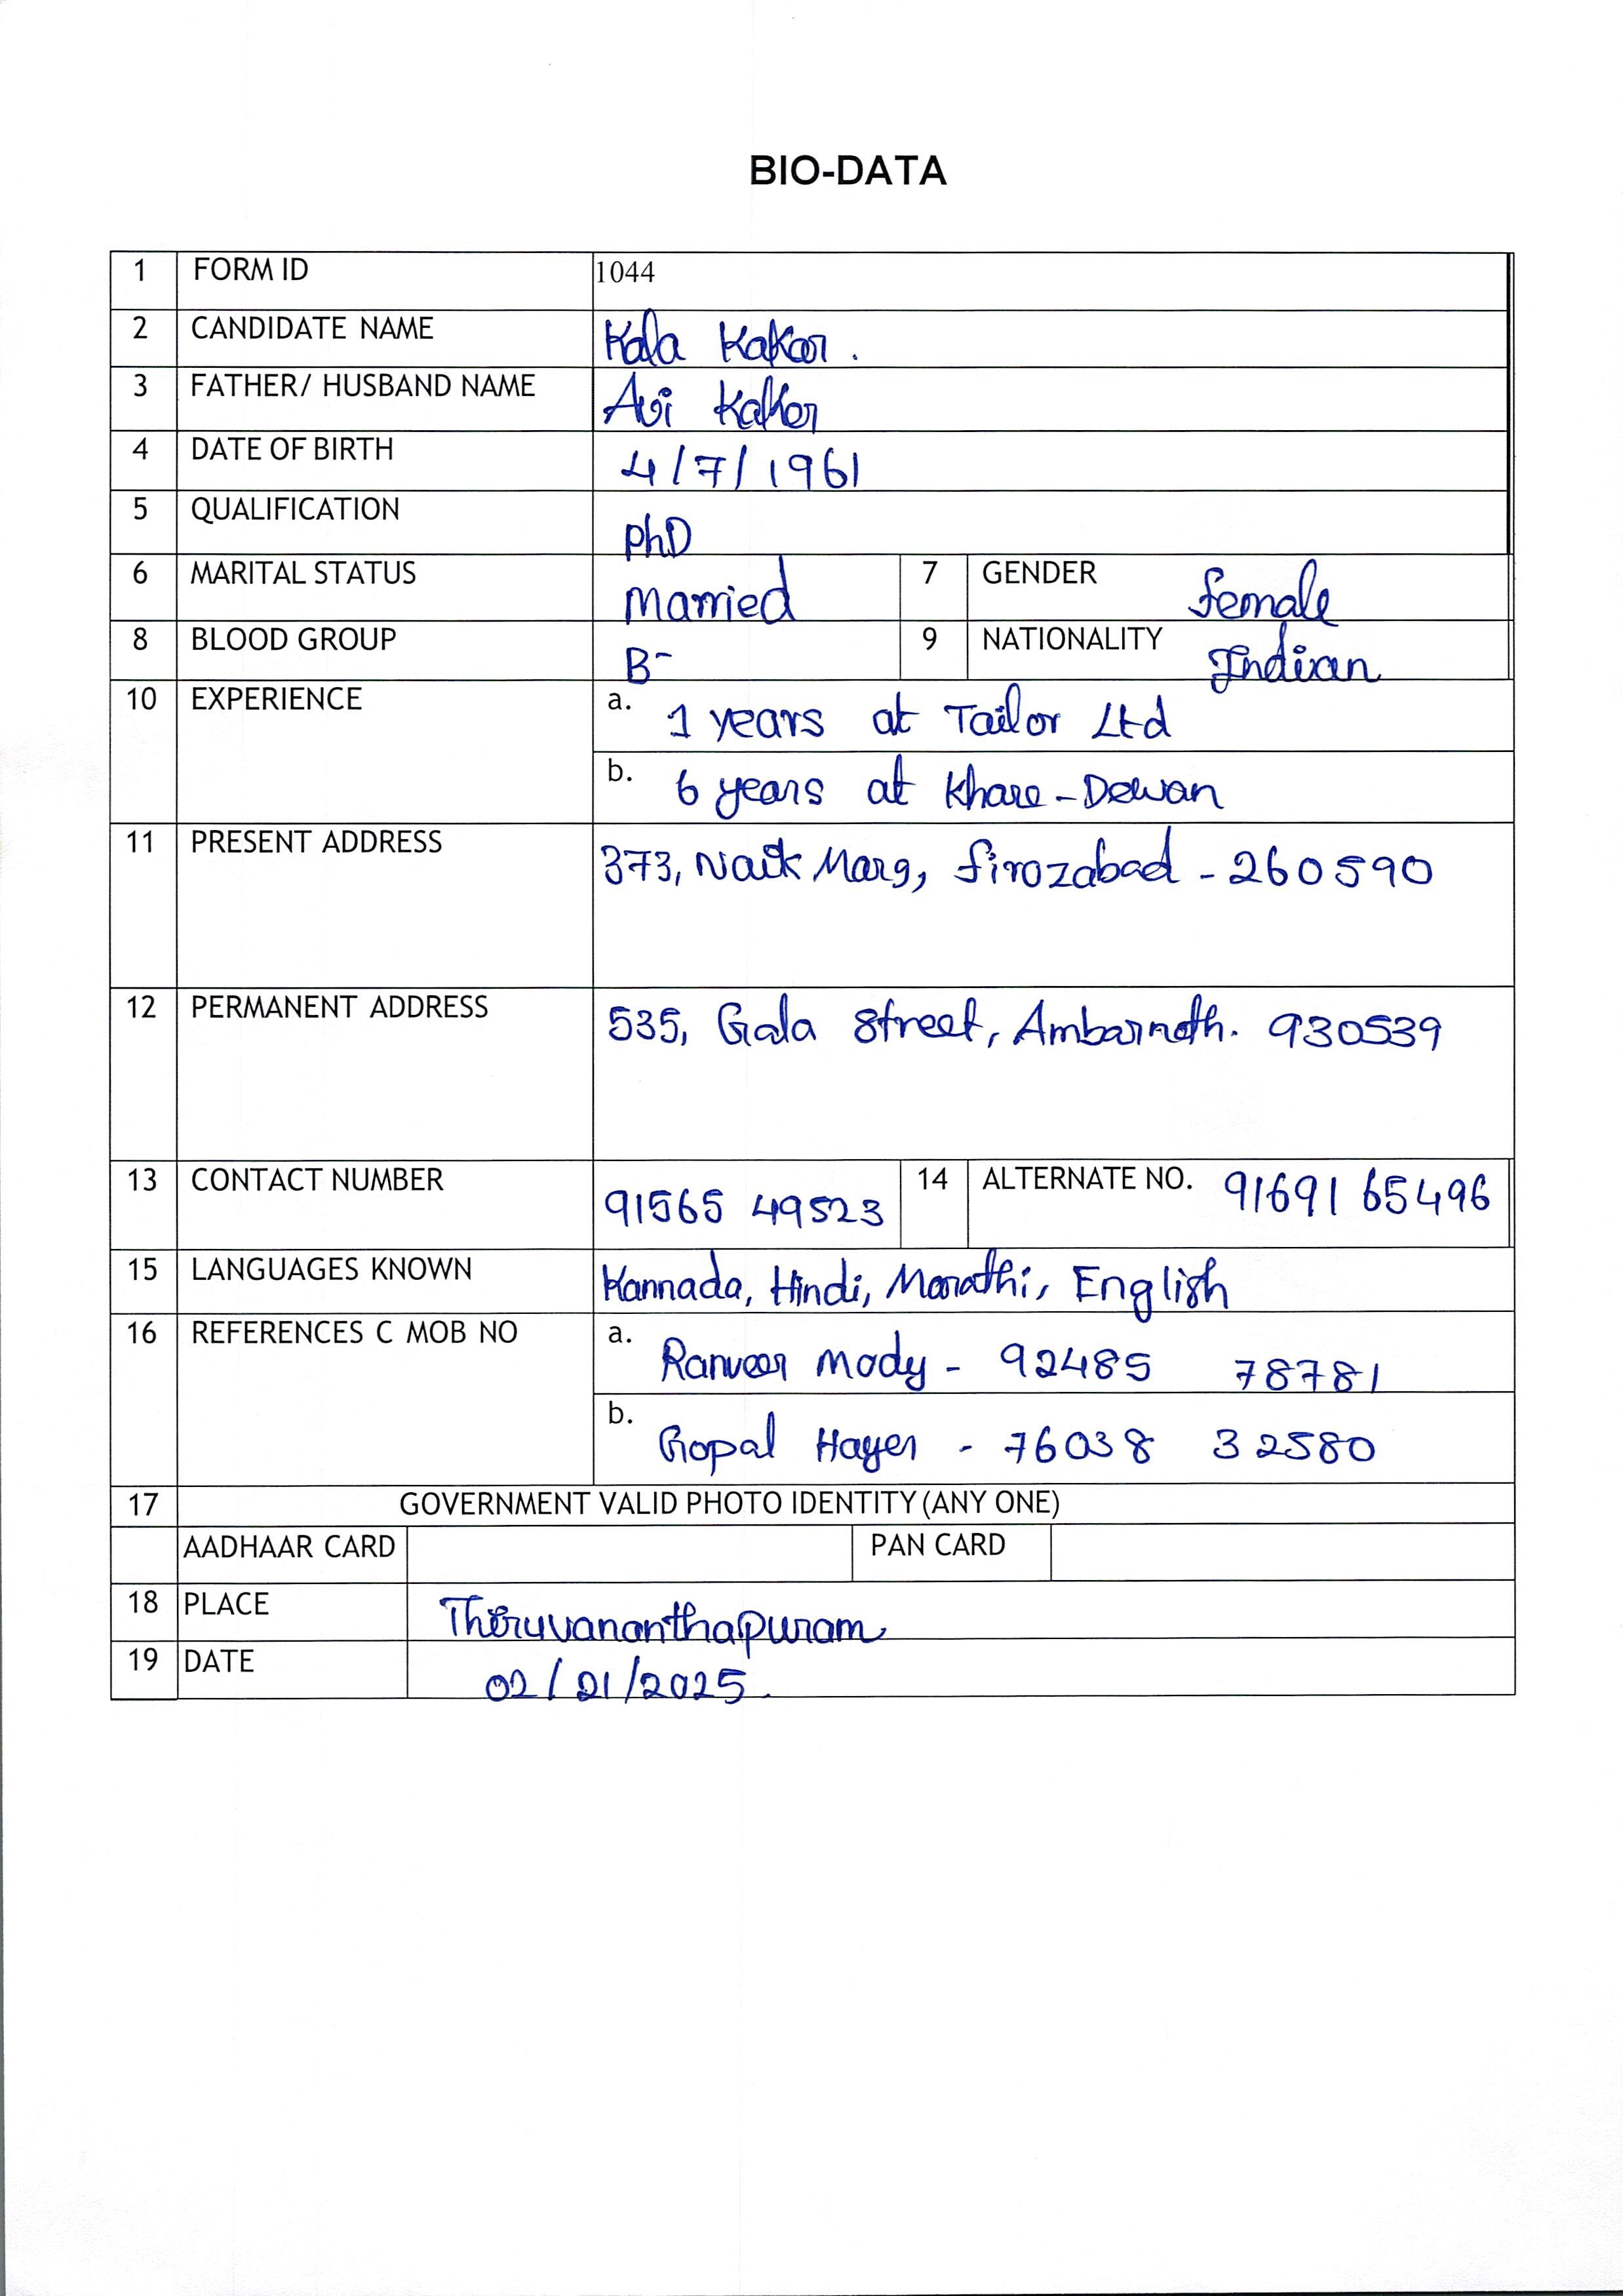 BIO-DATA
1 FORM ID 1044
2 CANDIDATE NAME Kala Kakar.
3 FATHER/ HUSBAND NAME Avi Kakar
4 DATE OF BIRTH 4/7/1961
5 QUALIFICATION phD
6 MARITAL STATUS Married 7 GENDER female
8 BLOOD GROUP B- 9 NATIONALITY Indian
10 EXPERIENCE a. 1 years at Tailor Ltd
b. 6 years at Khare-Dewan
11 PRESENT ADDRESS 373, Naik Marg, firozabad - 260590
12 PERMANENT ADDRESS 535, Gala Street, Ambarnath. 930539
13 CONTACT NUMBER 91565 49523 14 ALTERNATE NO. 91691 65496
15 LANGUAGES KNOWN Kannada, Hindi, Marathi, English
16 REFERENCES C MOB NO a. Ranveer Mody - 92485 78781
b. Gopal Hayer - 76038 32580
17 GOVERNMENT VALID PHOTO IDENTITY (ANY ONE)
AADHAAR CARD PAN CARD
18 PLACE Thiruvananthapuram
19 DATE 02/21/2025.